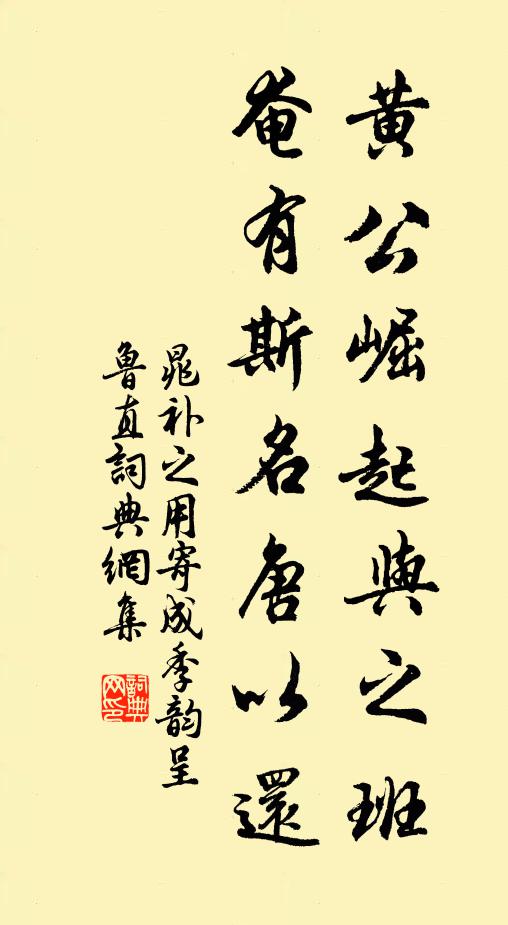 黄公崛起與之班
奄有斯名唐以還
晁補之用寄成季韵呈
魯直詞典網集
詞典网印